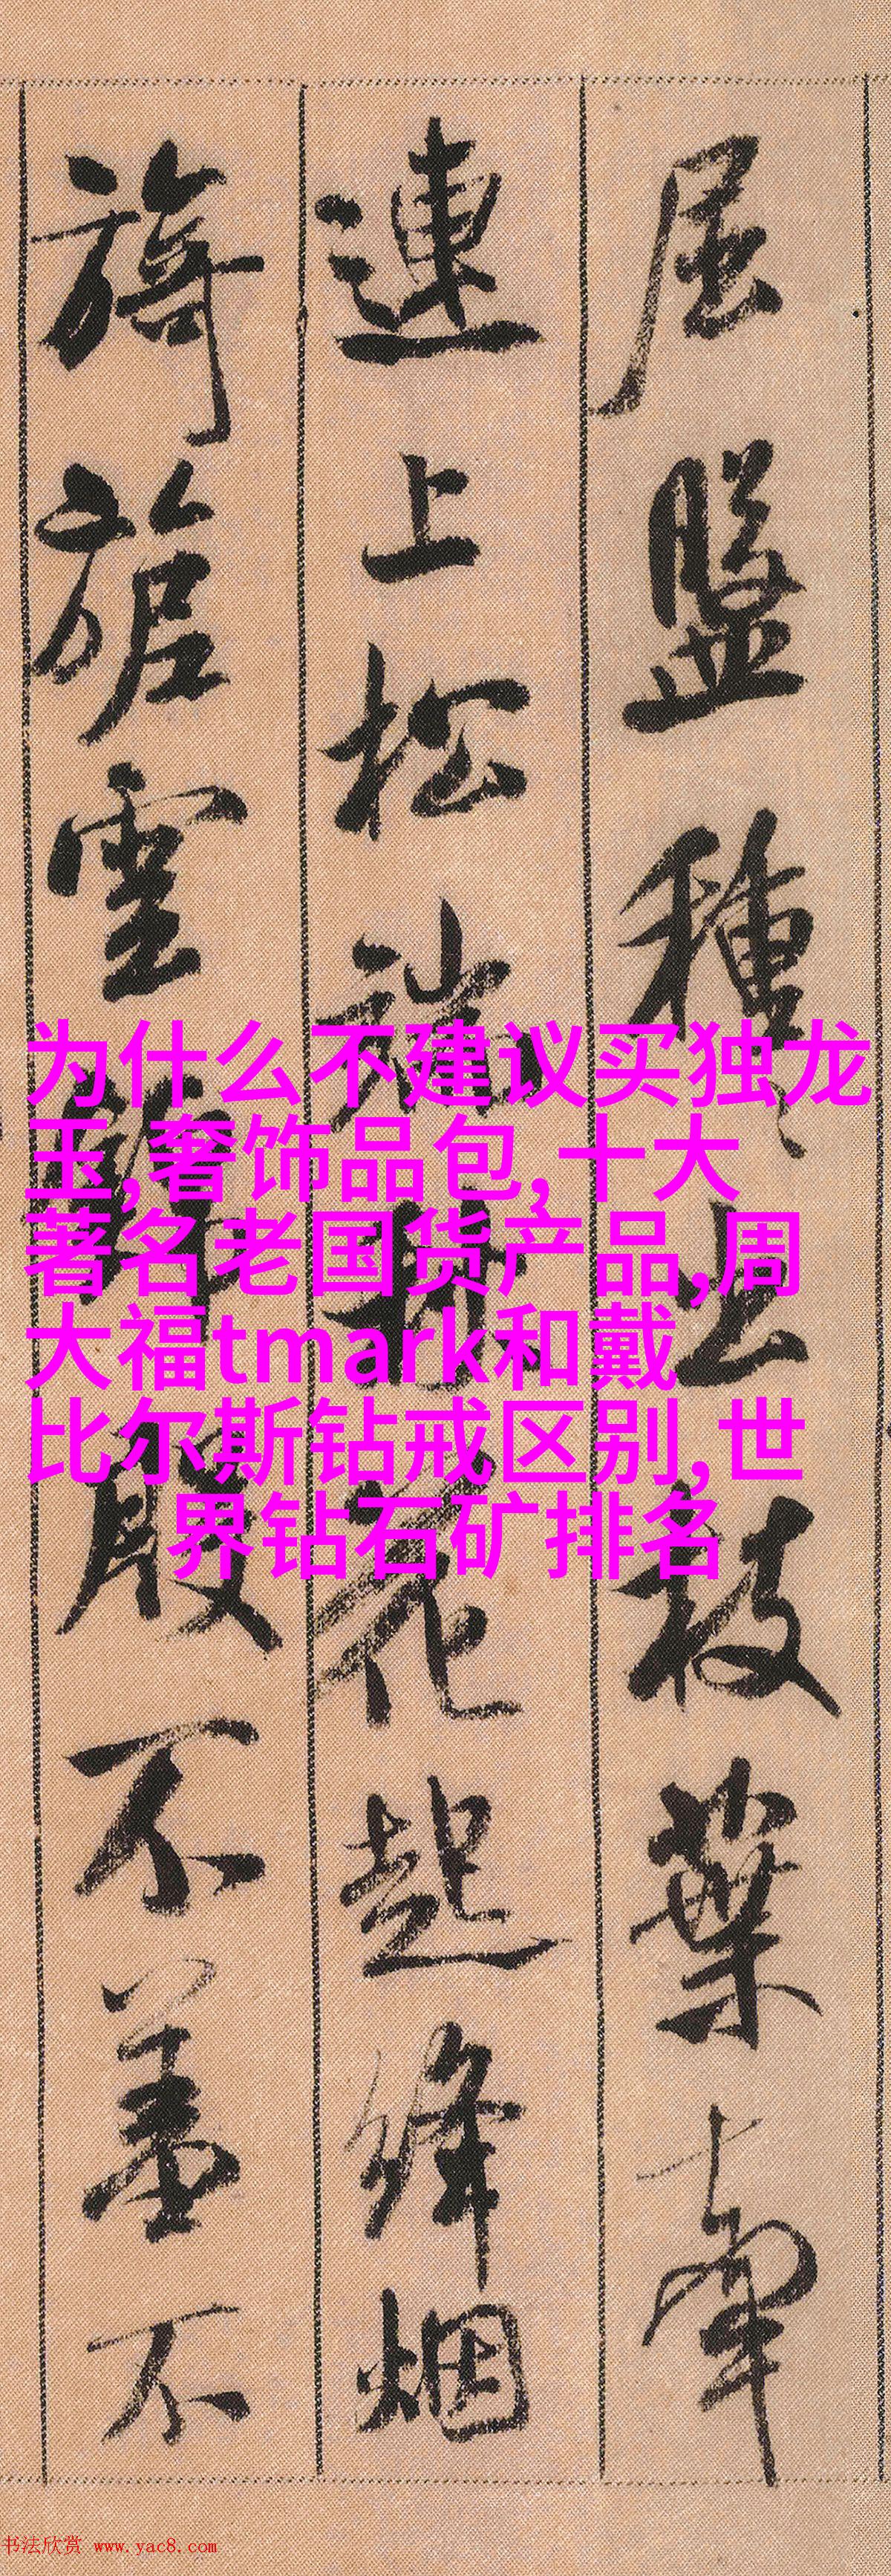 屈盤種〻出枝葉牽
連上松端秋花起絳烟
旖旎雲錦殷不羞不
为什么不建议买独龙
玉,奢饰品包,十大
著名老国货产品,周
大福tmark和戴
比尔斯钻戒区别,世
界钻石矿排名
书法欣赏 www.yac8.com